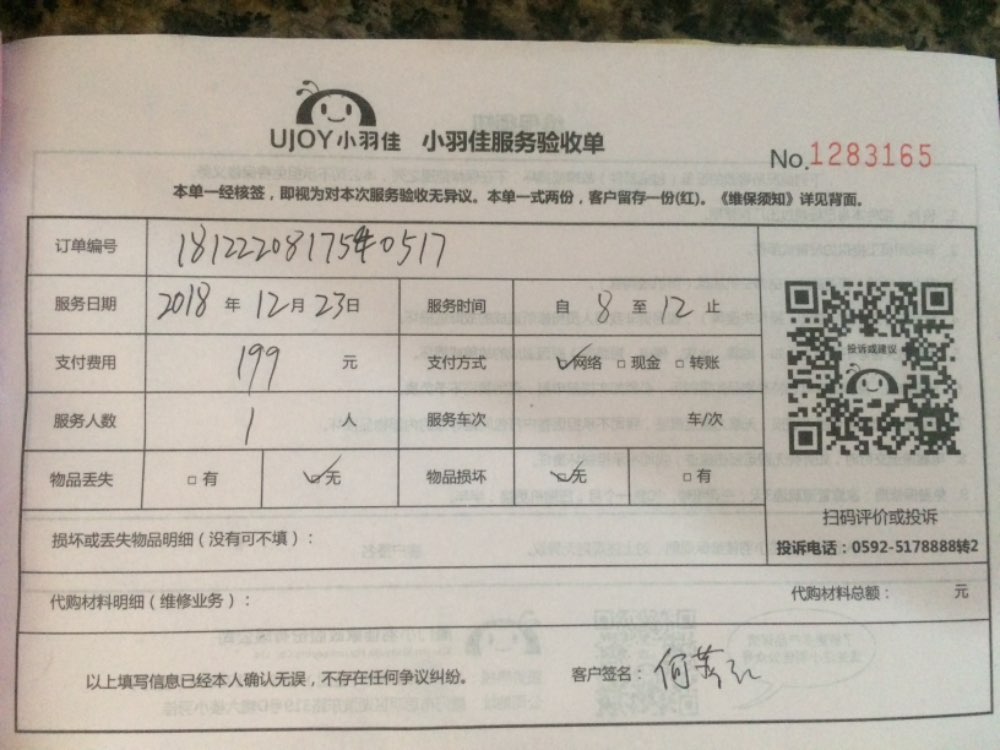 UJOY小羽佳 小羽佳服务验收单
No.1283165
本单一经核签，即视为对本次服务验收无异议。本单一式两份，客户留存一份(红)。《维保须知》详见背面。
订单编号
服务日期 2018 年 12 月 23 日 服务时间 自 8 至 12 止
支付费用 199 元 支付方式 ☑网络 □现金 □转账
投诉或建议
服务人数 1 人 服务车次 车/次
物品丢失 □有 ☑无 物品损坏 ☑无 □有
扫码评价或投诉
损坏或丢失物品明细（没有可不填）：
投诉电话：0592-5178888转2
代购材料明细（维修业务）： 代购材料总额： 元
以上填写信息已经本人确认无误，不存在任何争议纠纷。 客户签名：